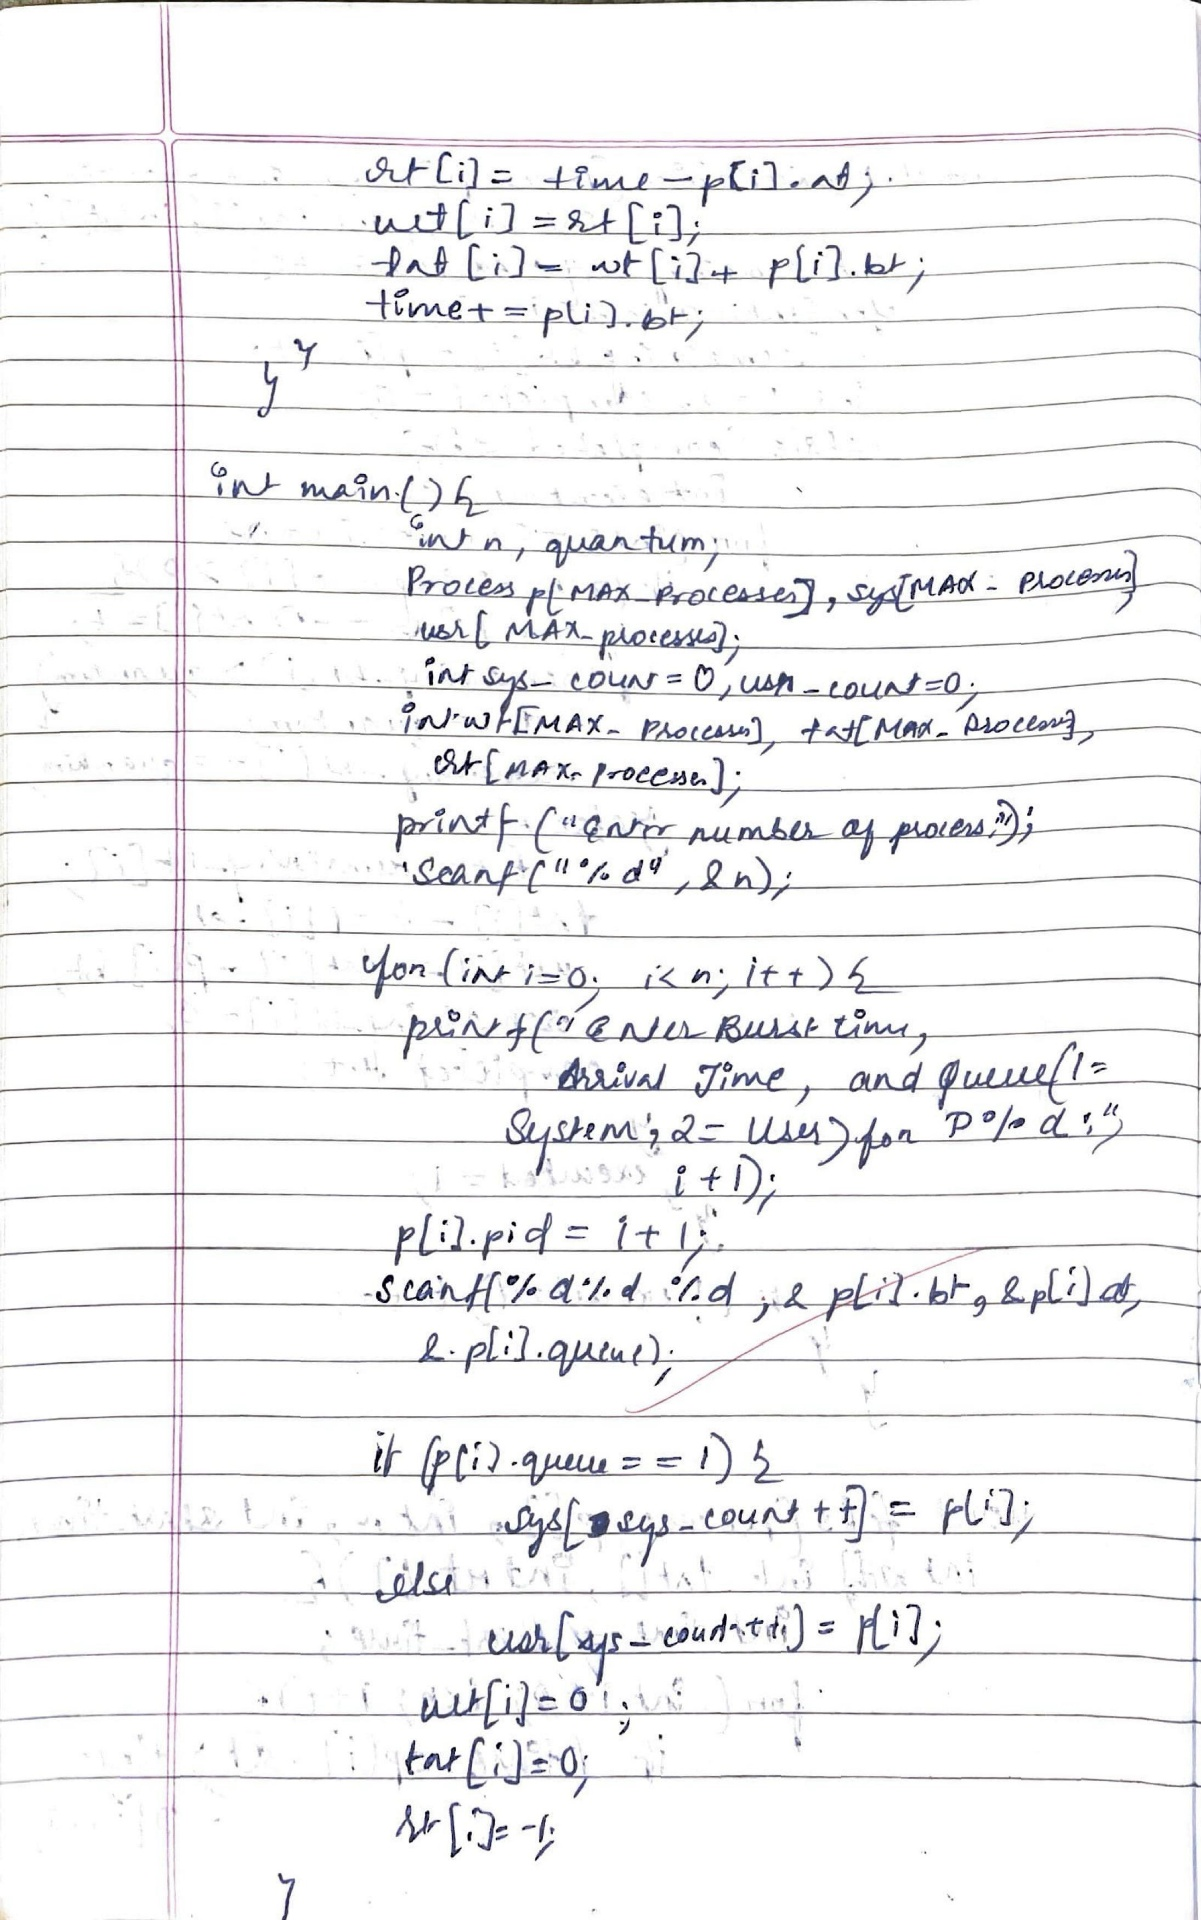 rt[i] = time - p[i].at;
wt[i] = rt[i];
tat[i] = wt[i] + p[i].bt;
time += p[i].bt;
}
}
int main() {
int n, quantum;
Process p[MAX_Processes], sys[MAX_Processes]
usr[MAX_processes];
int sys_count = 0, usr_count = 0;
int wt[MAX_Processes], tat[MAX_Processes],
rt[MAX_Processes];
printf("Enter number of process:");
Scanf("%d", &n);
for (int i=0; i<n; i++) {
printf("Enter Burst time,
Arrival Time, and Queue(1=
System; 2= User) for P%d:",
i+1);
p[i].pid = i+1;
scanf(%d%d %d, & p[i].bt, &p[i]at,
& p[i].queue);
if (p[i].queue == 1) {
sys[sys_count++] = p[i];
else
usr[sys_count++] = p[i];
wt[i]=0;
tat[i]=0;
rt[i]=-1;
}